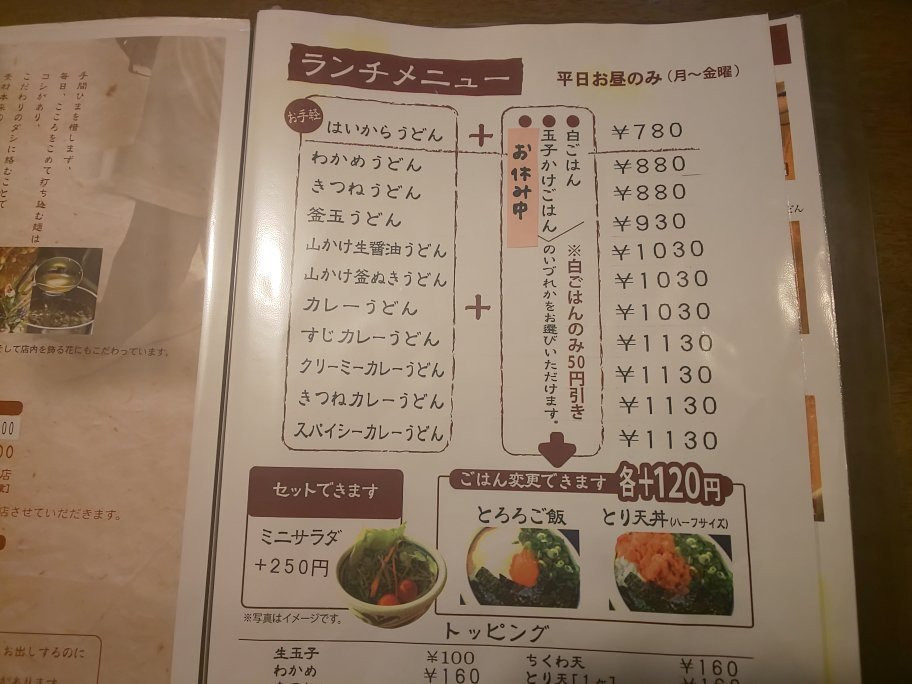 手間ひまを惜します、
毎日、こころをこめて打ち込む麺は
コシがあり、
こだわりのダシに絡むことで
そして店内を飾る花にもこだわっています。
店させていただきます。
お出しするのに
ランチメニュー
平日お昼のみ(月〜金曜)
お手軽
はいからうどん
わかめうどん
きつねうどん
釜玉うどん
山かけ生醤油うどん
山かけ釜ぬきうどん
カレーうどん
すじカレーうどん
クリーミーカレーうどん
きつねカレーうどん
スパイシーカレーうどん
+
+
●白ごはん
●玉子かけごはん
●
お休み中
のいづれかをお選びいただけます。
※白ごはんのみ50円引き
¥780
¥880
¥880
¥930
¥1030
¥1030
¥1030
¥1130
¥1130
¥1130
¥1130
セットできます
ミニサラダ
+250円
※写真はイメージです。
ごはん変更できます 各+120円
とろろご飯
とり天丼(ハーフサイズ)
トッピング
生玉子 ¥100
わかめ ¥160
ちくわ天 ¥160
とり天[1ヶ]